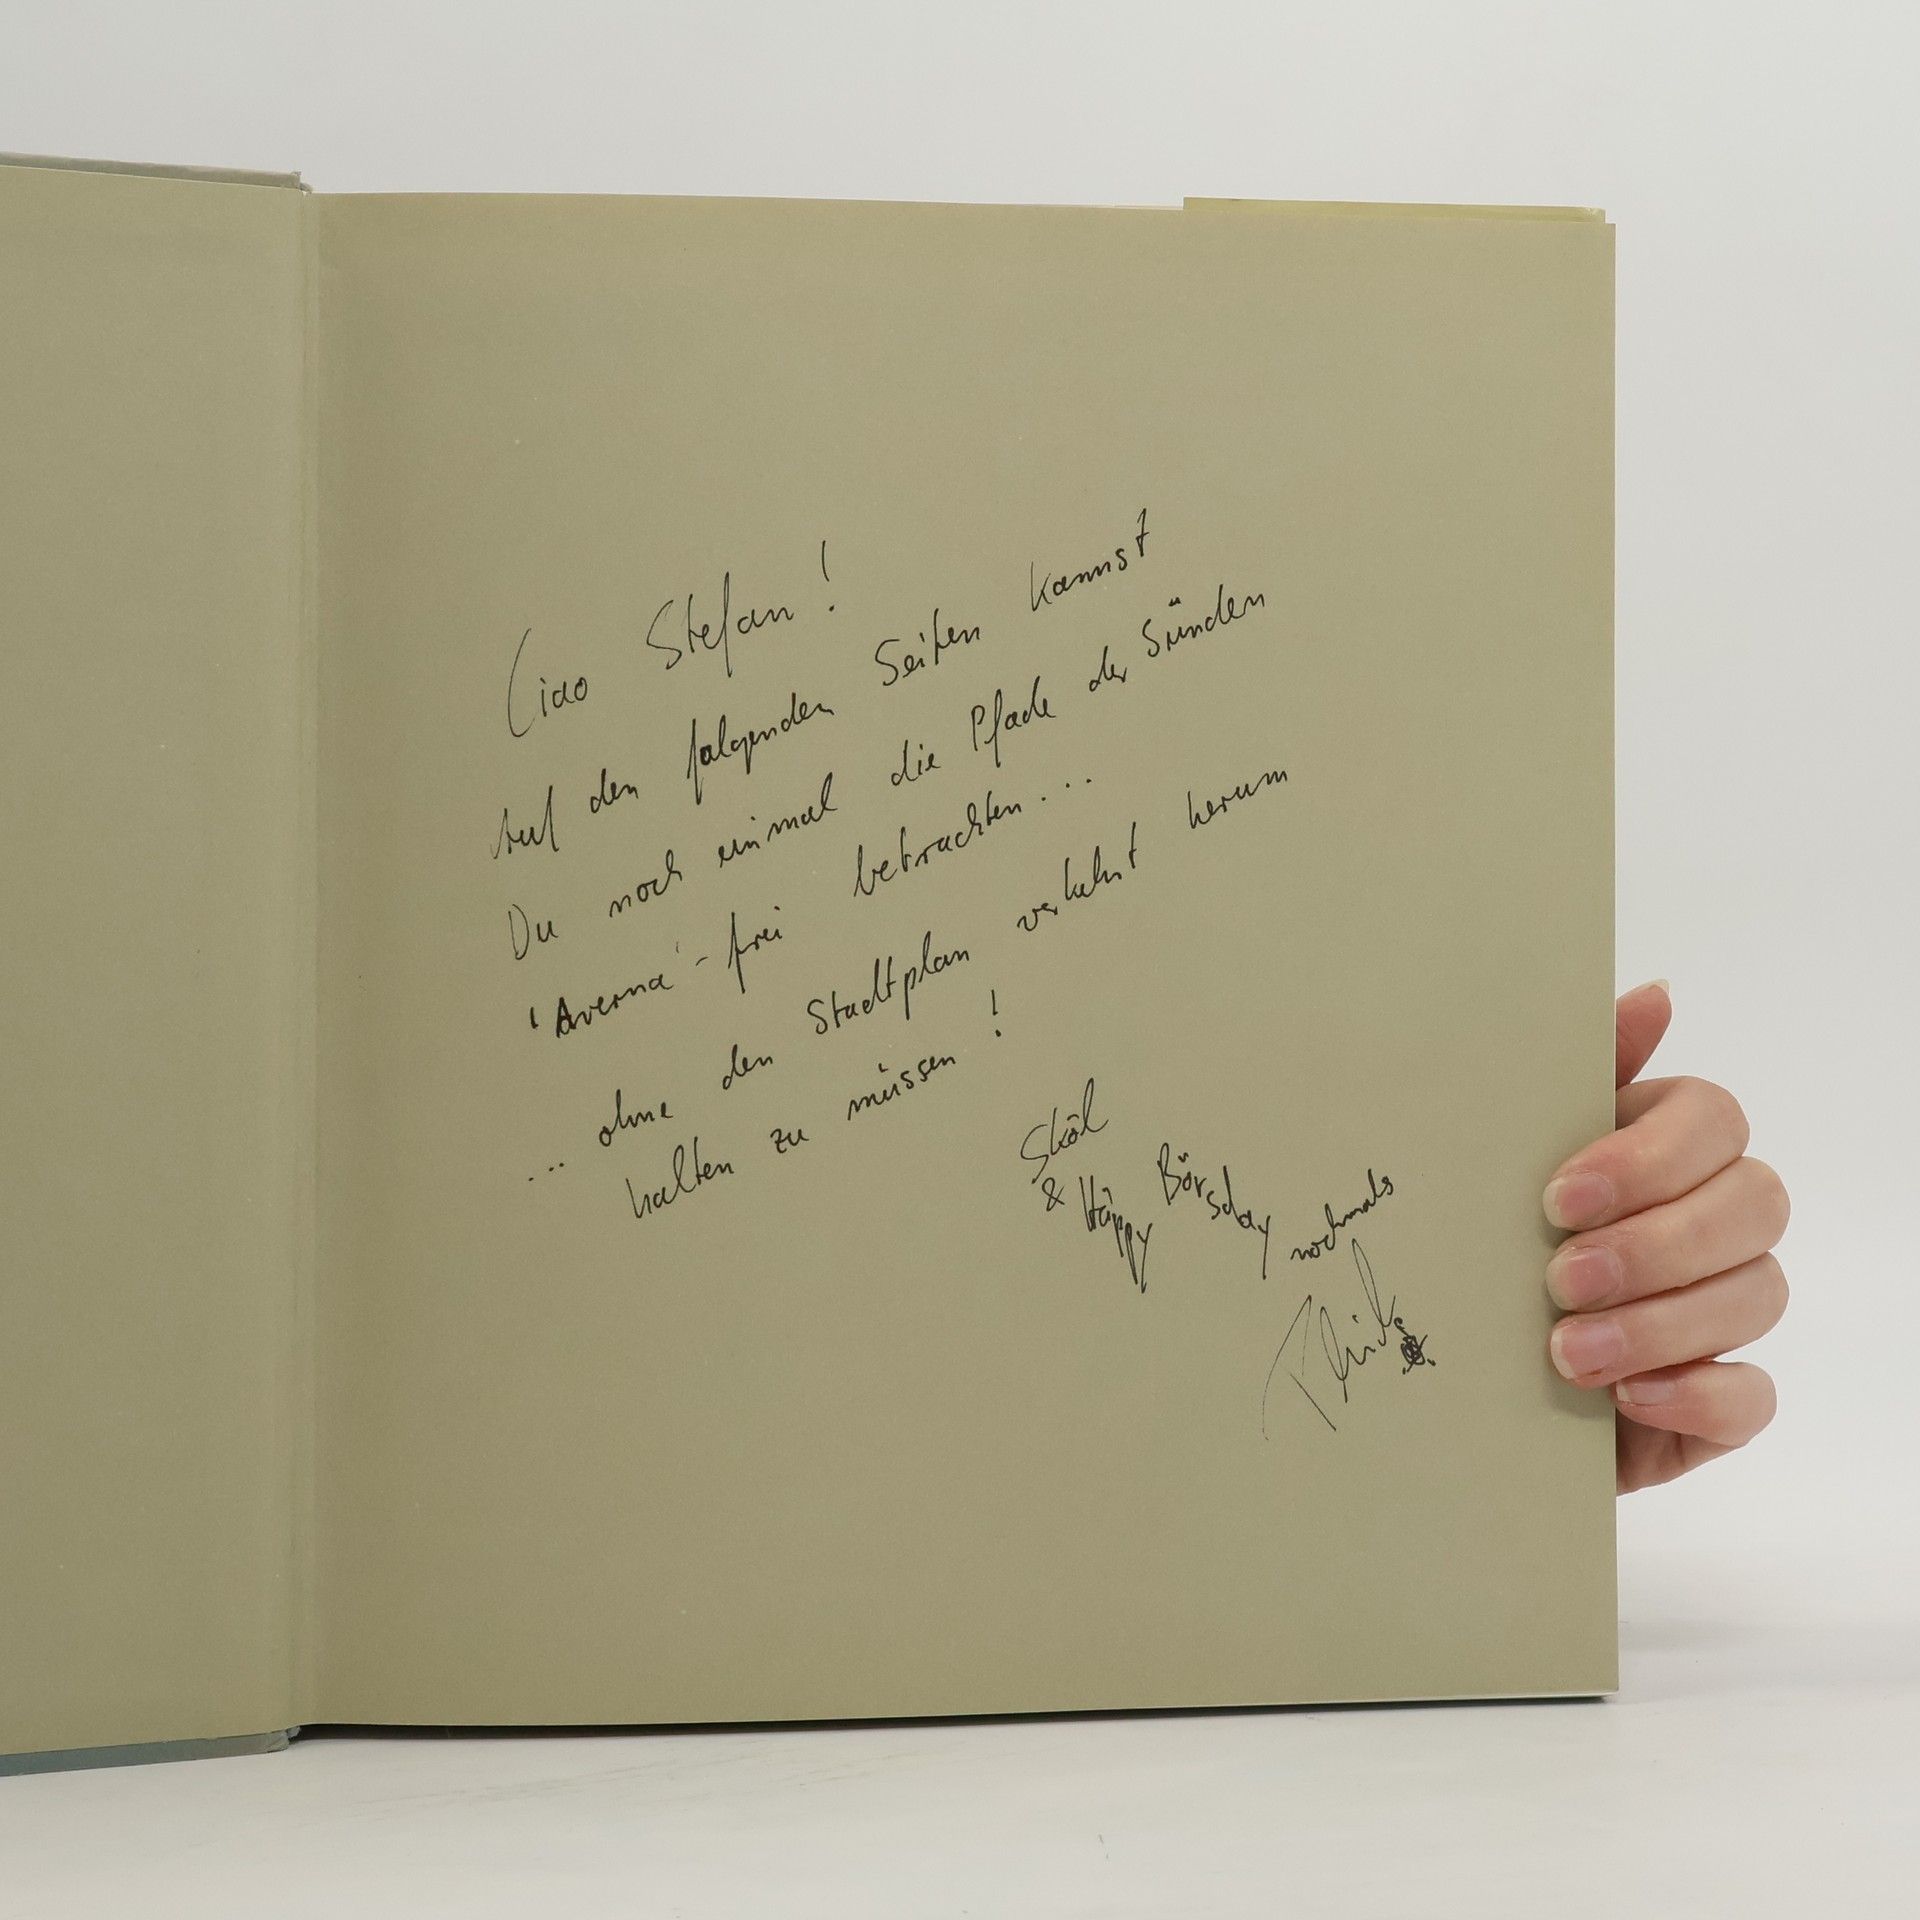 Ciao Stefan!
Auf den folgenden Seiten kannst
Du noch einmal die Pfade der Sünden
'Averna'-frei betrachten...
... ohne den Stadtplan verkehrt herum
halten zu müssen!
Sköl
& Häppy Börsday nochmals